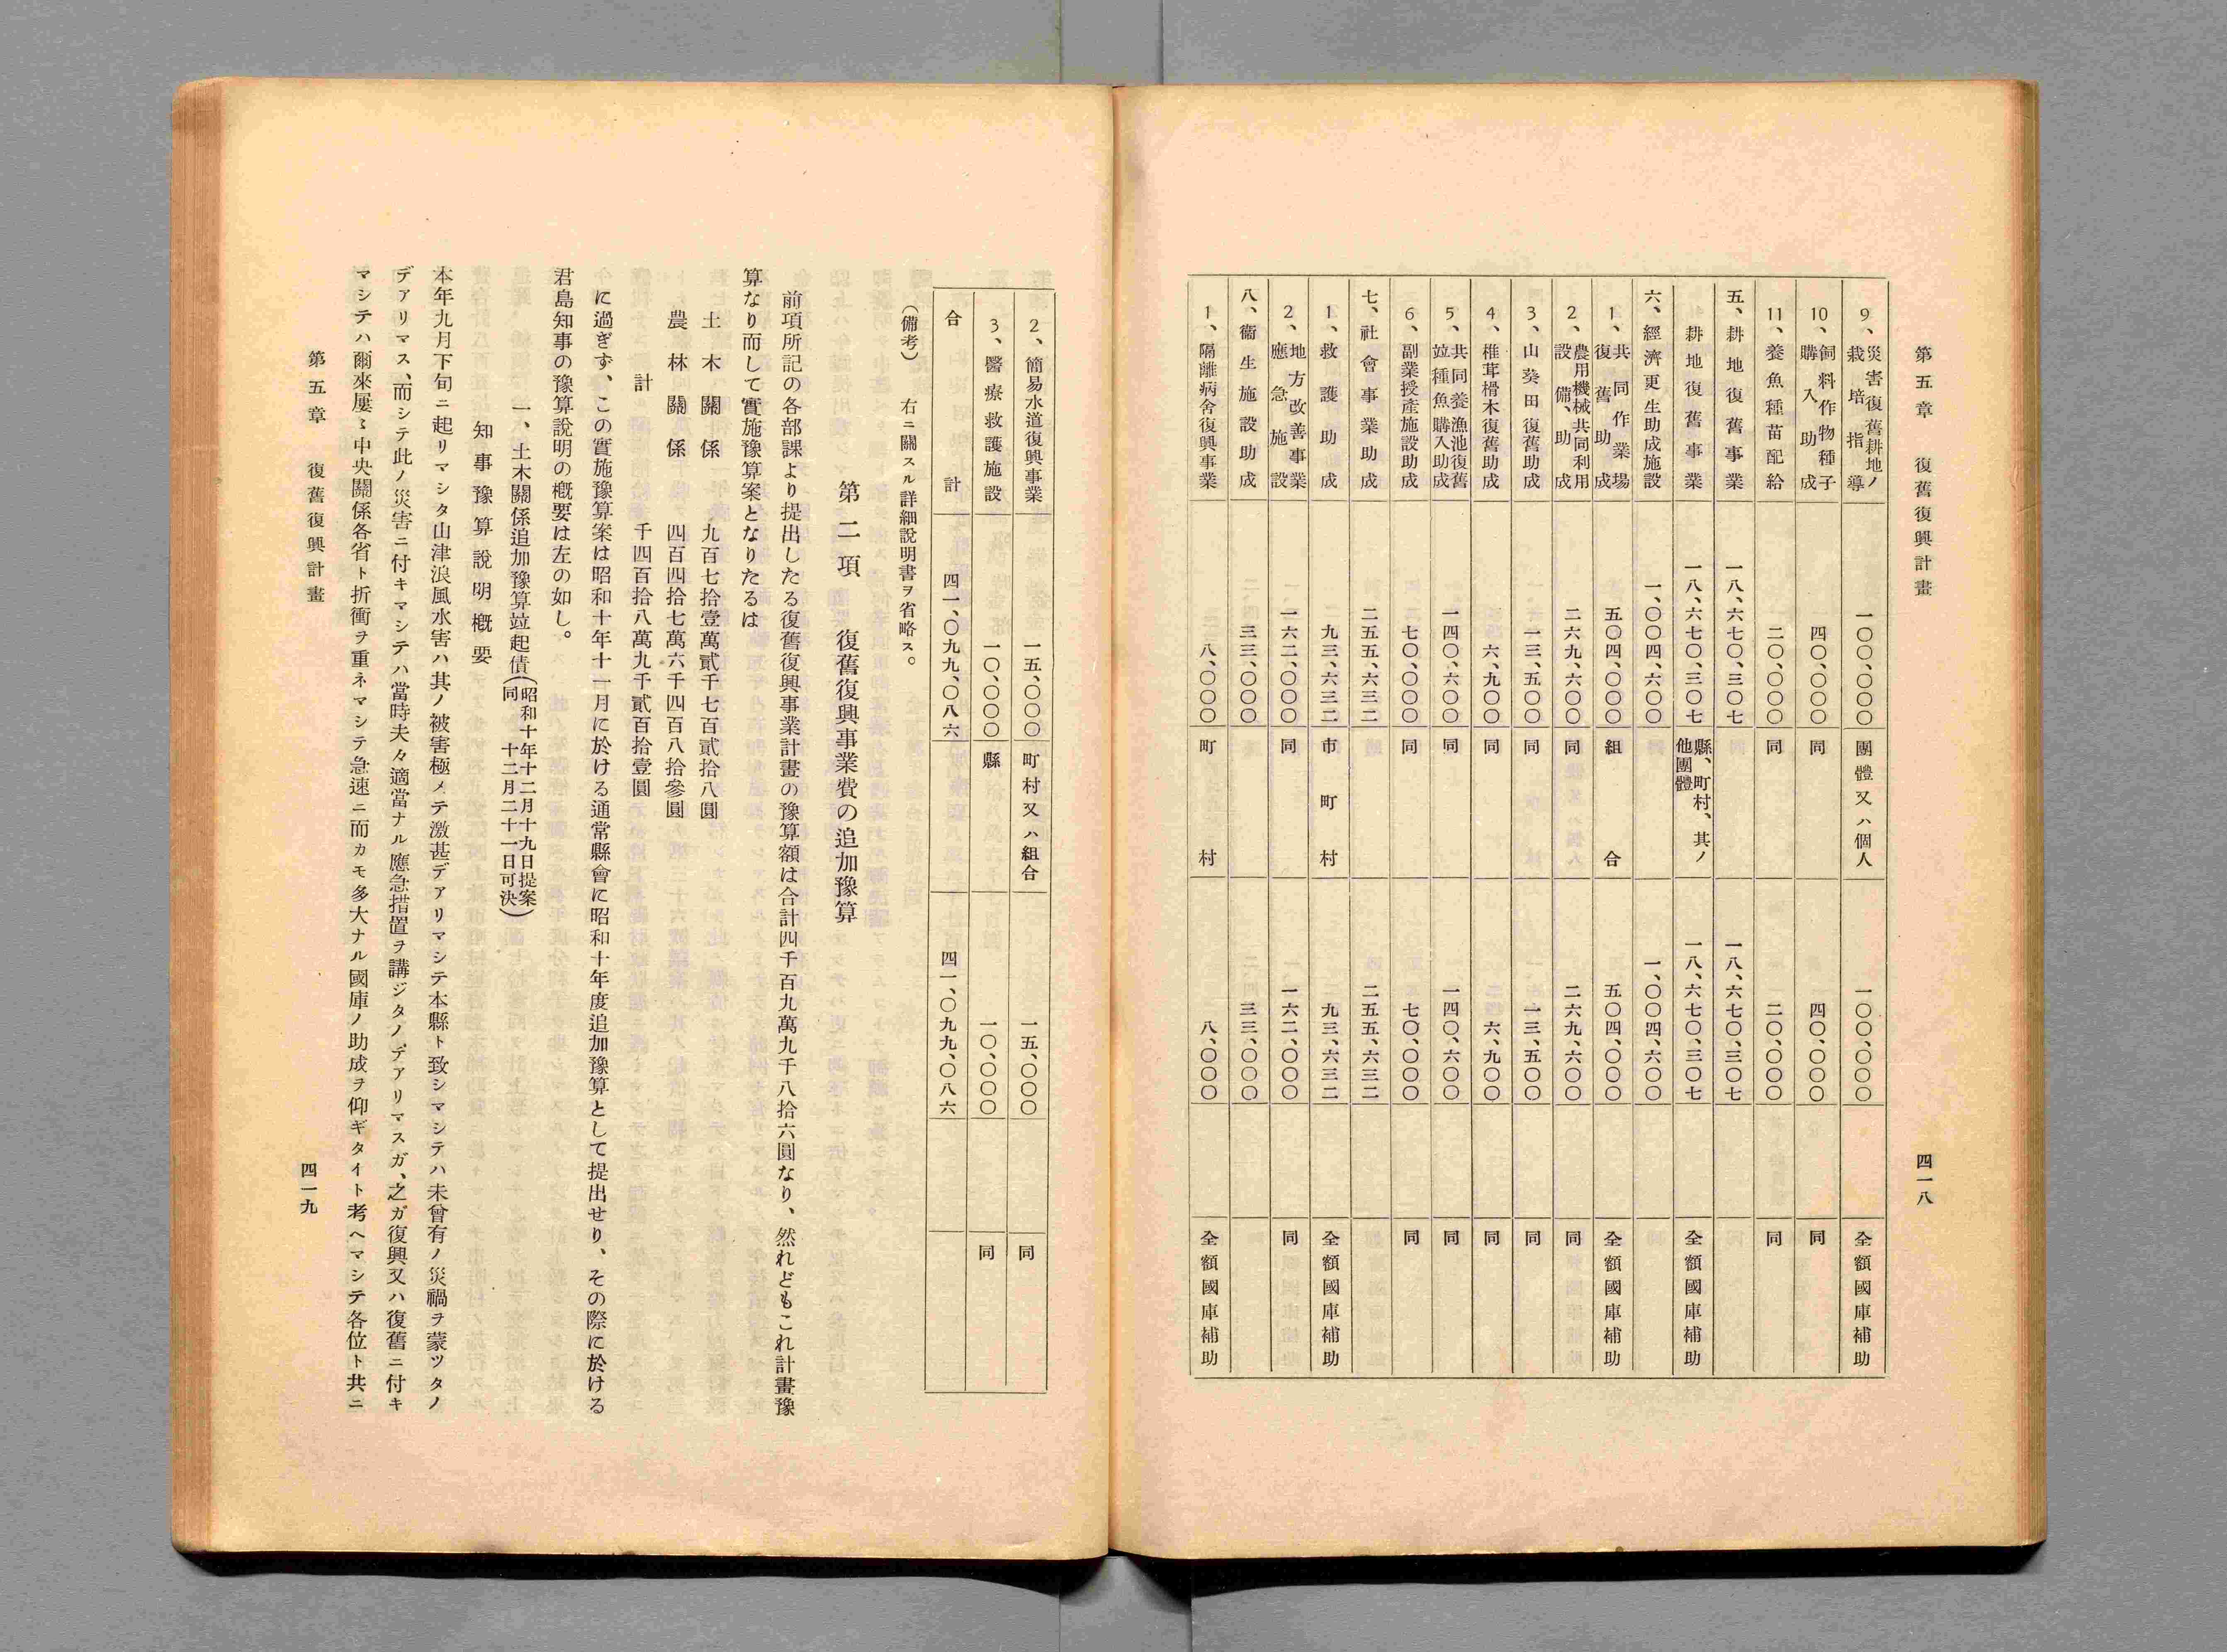 第五章　復舊復興計畫
四一八
9、災害復舊耕地ノ栽培指導　一〇〇、〇〇〇　團體又ハ個人　一〇〇、〇〇〇　全額國庫補助
10、飼料作物種子購入助成　四〇、〇〇〇　同　四〇、〇〇〇　同
11、養魚種苗配給　二〇、〇〇〇　同　二〇、〇〇〇　同
五、耕地復舊事業　一八、六七〇、三〇七　一八、六七〇、三〇七
耕地復舊事業　一八、六七〇、三〇七　縣、町村、其ノ他團體　一八、六七〇、三〇七　全額國庫補助
六、經濟更生助成施設　一、〇〇四、六〇〇　一、〇〇四、六〇〇
1、共同作業場復舊助成　五〇四、〇〇〇　組合　五〇四、〇〇〇　全額國庫補助
2、農用機械共同利用設備、助成　二六九、六〇〇　同　二六九、六〇〇　同
3、山葵田復舊助成　一三、五〇〇　同　一三、五〇〇　同
4、椎茸榾木復舊助成　六、九〇〇　同　六、九〇〇　同
5、共同養漁池復舊竝種魚購入助成　一四〇、六〇〇　同　一四〇、六〇〇　同
6、副業授產施設助成　七〇、〇〇〇　同　七〇、〇〇〇　同
七、社會事業助成　二五五、六三二　二五五、六三二
1、救護助成　九三、六三二　市町村　九三、六三二　全額國庫補助
2、地方改善事業應急施設　一六二、〇〇〇　同　一六二、〇〇〇　同
八、衞生施設助成　三三、〇〇〇　三三、〇〇〇
1、隔離病舍復興事業　八、〇〇〇　町村　八、〇〇〇　全額國庫補助
2、簡易水道復興事業　一五、〇〇〇　町村又ハ組合　一五、〇〇〇　同
3、醫療救護施設　一〇、〇〇〇　縣　一〇、〇〇〇　同
合計　四一、〇九九、〇八六　四一、〇九九、〇八六
（備考）　右ニ關スル詳細說明書ヲ省略ス。
第二項　復舊復興事業費の追加豫算
前項所記の各部課より提出したる復舊復興事業計畫の豫算額は合計四千百九萬九千八拾六圓なり、然れどもこれ計畫豫
算なり而して實施豫算案となりたるは
土木關係　九百七拾壹萬貳千七百貳拾八圓
農林關係　四百四拾七萬六千四百八拾參圓
計　千四百拾八萬九千貳百拾壹圓
に過ぎず、この實施豫算案は昭和十年十一月に於ける通常縣會に昭和十年度追加豫算として提出せり、その際に於ける
君島知事の豫算說明の槪要は左の如し。
一、土木關係追加豫算竝起債（昭和十年十二月十九日提案　同　十二月二十一日可決）
知事豫算說明槪要
本年九月下旬ニ起リマシタ山津浪風水害ハ其ノ被害極メテ激甚デアリマシテ本縣ト致シマシテハ未曾有ノ災禍ヲ蒙ツタノ
デアリマス、而シテ此ノ災害ニ付キマシテハ當時夫々適當ナル應急措置ヲ講ジタノデアリマスガ、之ガ復興又ハ復舊ニ付キ
マシテハ爾來屢〻中央關係各省ト折衝ヲ重ネマシテ急速ニ而カモ多大ナル國庫ノ助成ヲ仰ギタイト考ヘマシテ各位ト共ニ
第五章　復舊復興計畫
四一九